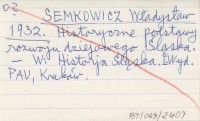 o?
SEMKOWICZ Władysław
1932. Historyczne podstawy
rozwoju dziejowego Śląska.
– W: Historja Śląska. Wyd.
PAU, Kraków.
BT/063/2409